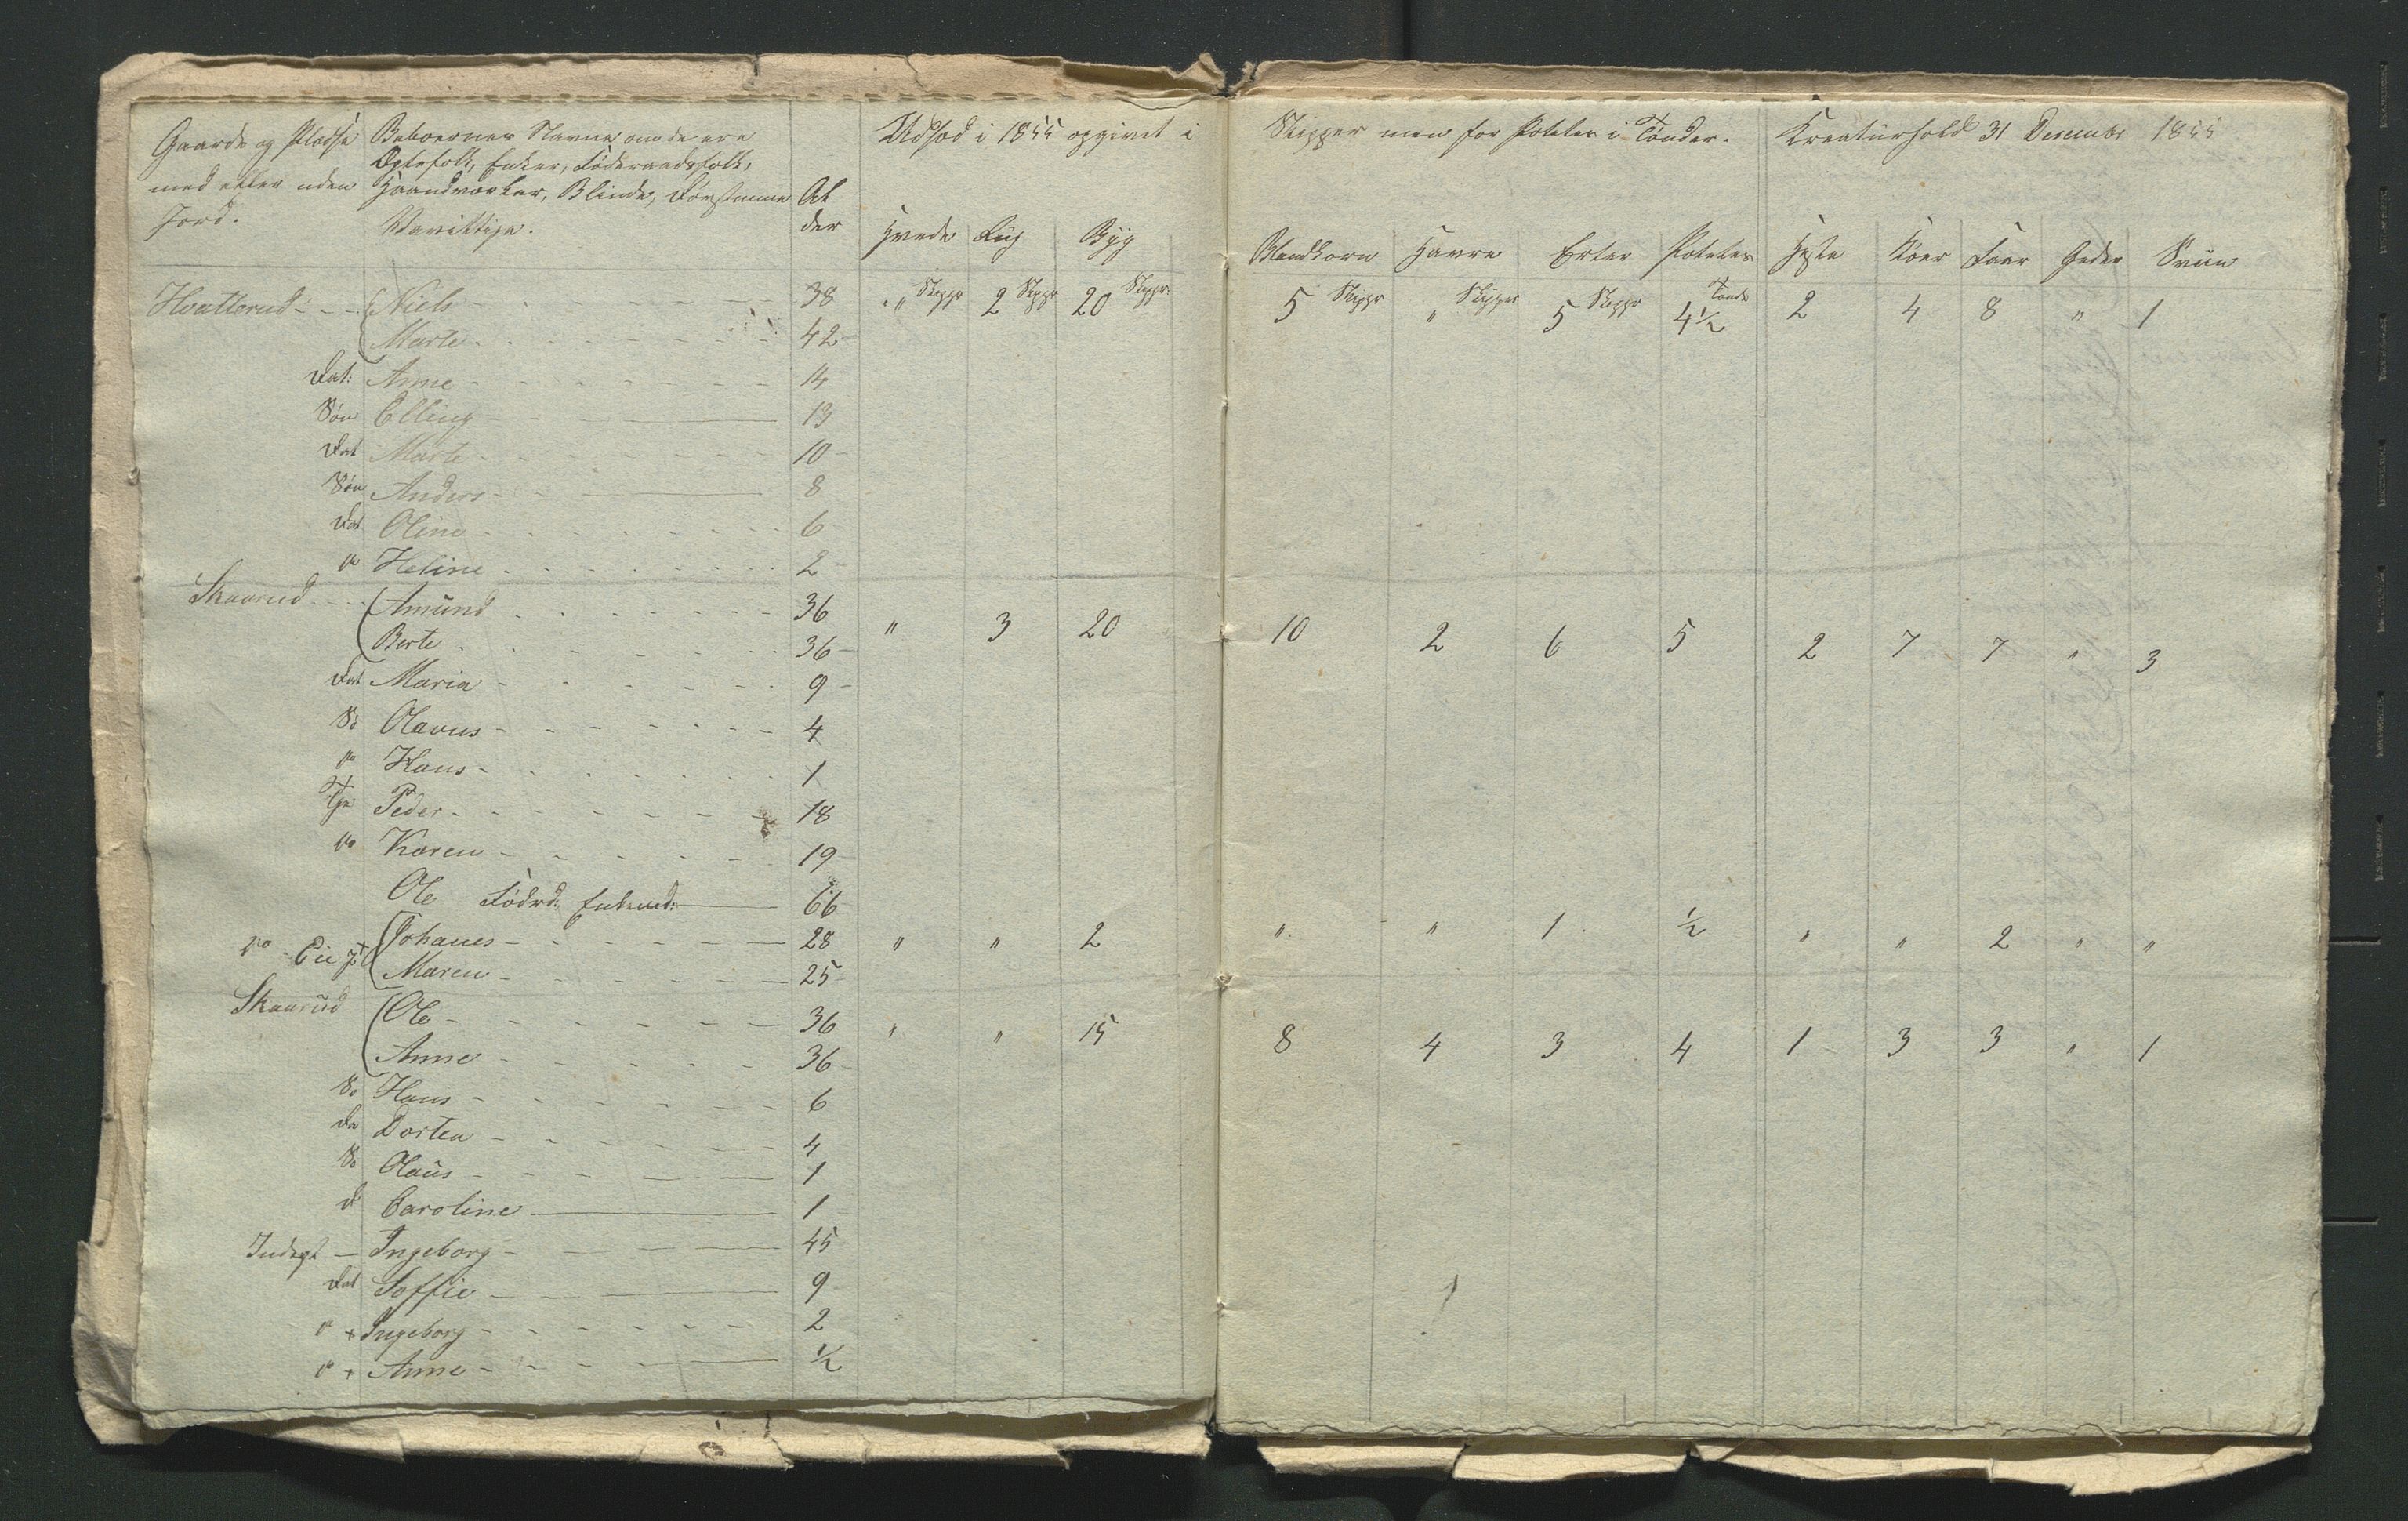 Gaarde og Pladse med eller uden Jord.
Beboernes Navne om de ere Ægtefolk, Enker, Føderaadsfolk, Haandværker, Blinde, Døvstumme Vanvittige.
Alder
Udsæd i 1855 opgivet i Skipper men for Poteter i Tønder.
Kreaturhold 31 December 1855
Hvede Rug Byg Blandkorn Havre Erter Poteter Heste Køer Faar Geder Sviin
Hvatterud - - - Niels 38 " Skpr 2 Skpr 20 Skpr. 5 Skipr " Skipper 5 Skppr 4 1/2 Tønde 2 4 8 " 1
Marte 42
Dat: Anne 14
Søn Elling 13
Dat Marte 10
Søn Anders 8
Dat Oline 6
do Heline 2
Skaarud - - - Amund 36 " 3 20 10 2 6 5 2 7 7 " 3
Berte 36
Dat Maria 9
Sø Olavus 4
do Hans 1
Tje Peder 18
do Karen 19
Ole Fødrd: Enkemd: 66
do - Eie Johanes 28 " " 2 " " 1 1/2 " " 2 " "
Maren 25
Skaarud Ole 36 " " 15 8 4 3 4 1 3 3 " 1
Anne 36
Sø Hans 6
Da Dortea 4
Sø Olaus 1
D Caroline 1
Inderst - Ingeborg 45
Dat Soffie 9
do + Ingeborg 2
do + Anne 1/2